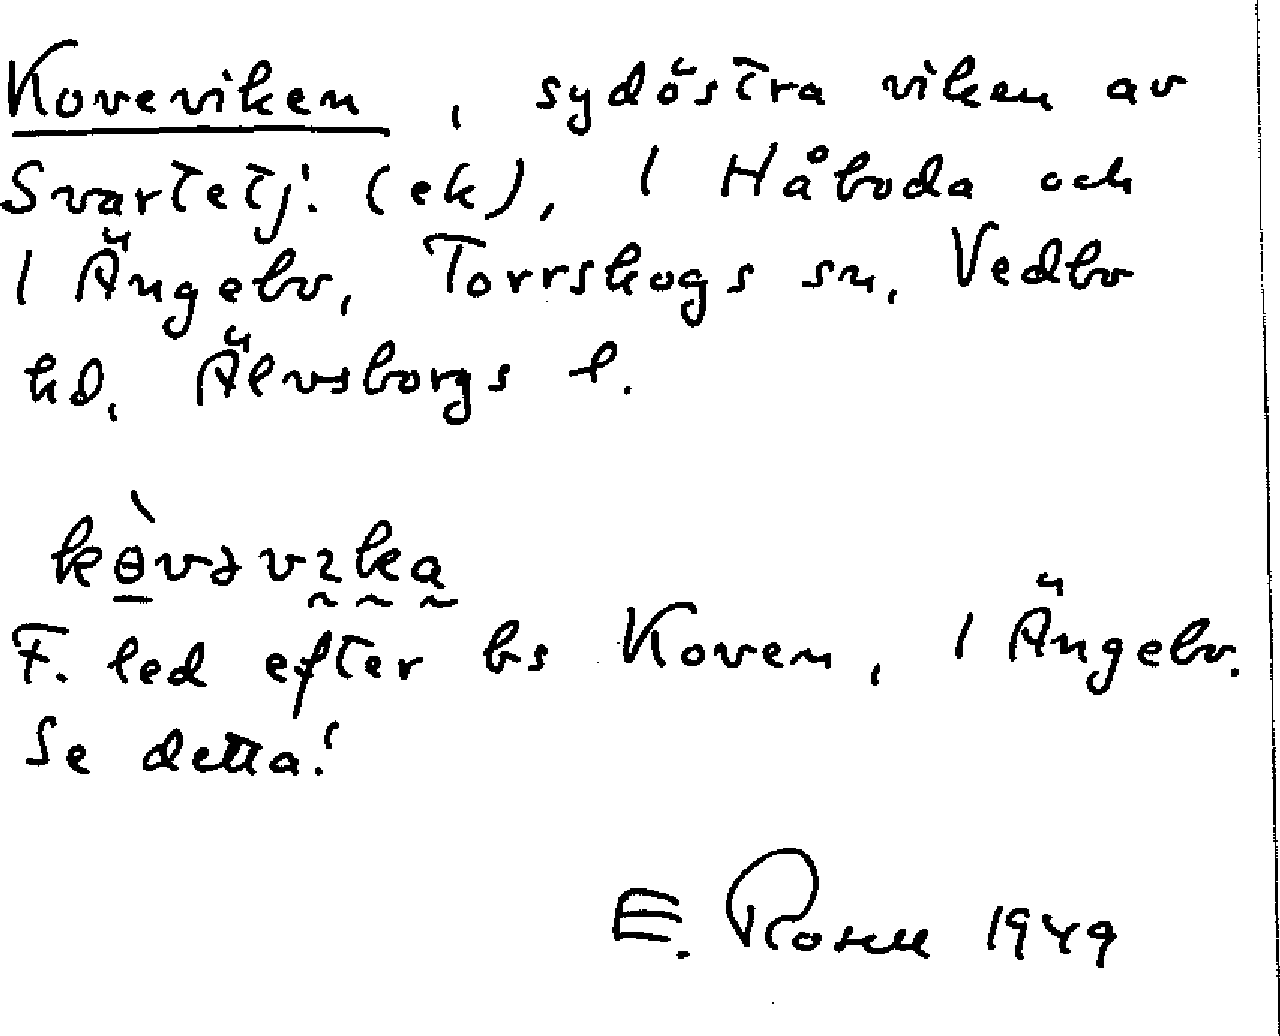 Koveviken, sydöstra viken av
Svartetj. (ek), 1 Håboda och
1 Ängebo, Torrskogs sn, Vedbo
hd, Älvsborgs l.
kɵ̀vəvika
F. led efter bs Koven, 1 Ängebo.
Se detta!
E. Rosell 1949